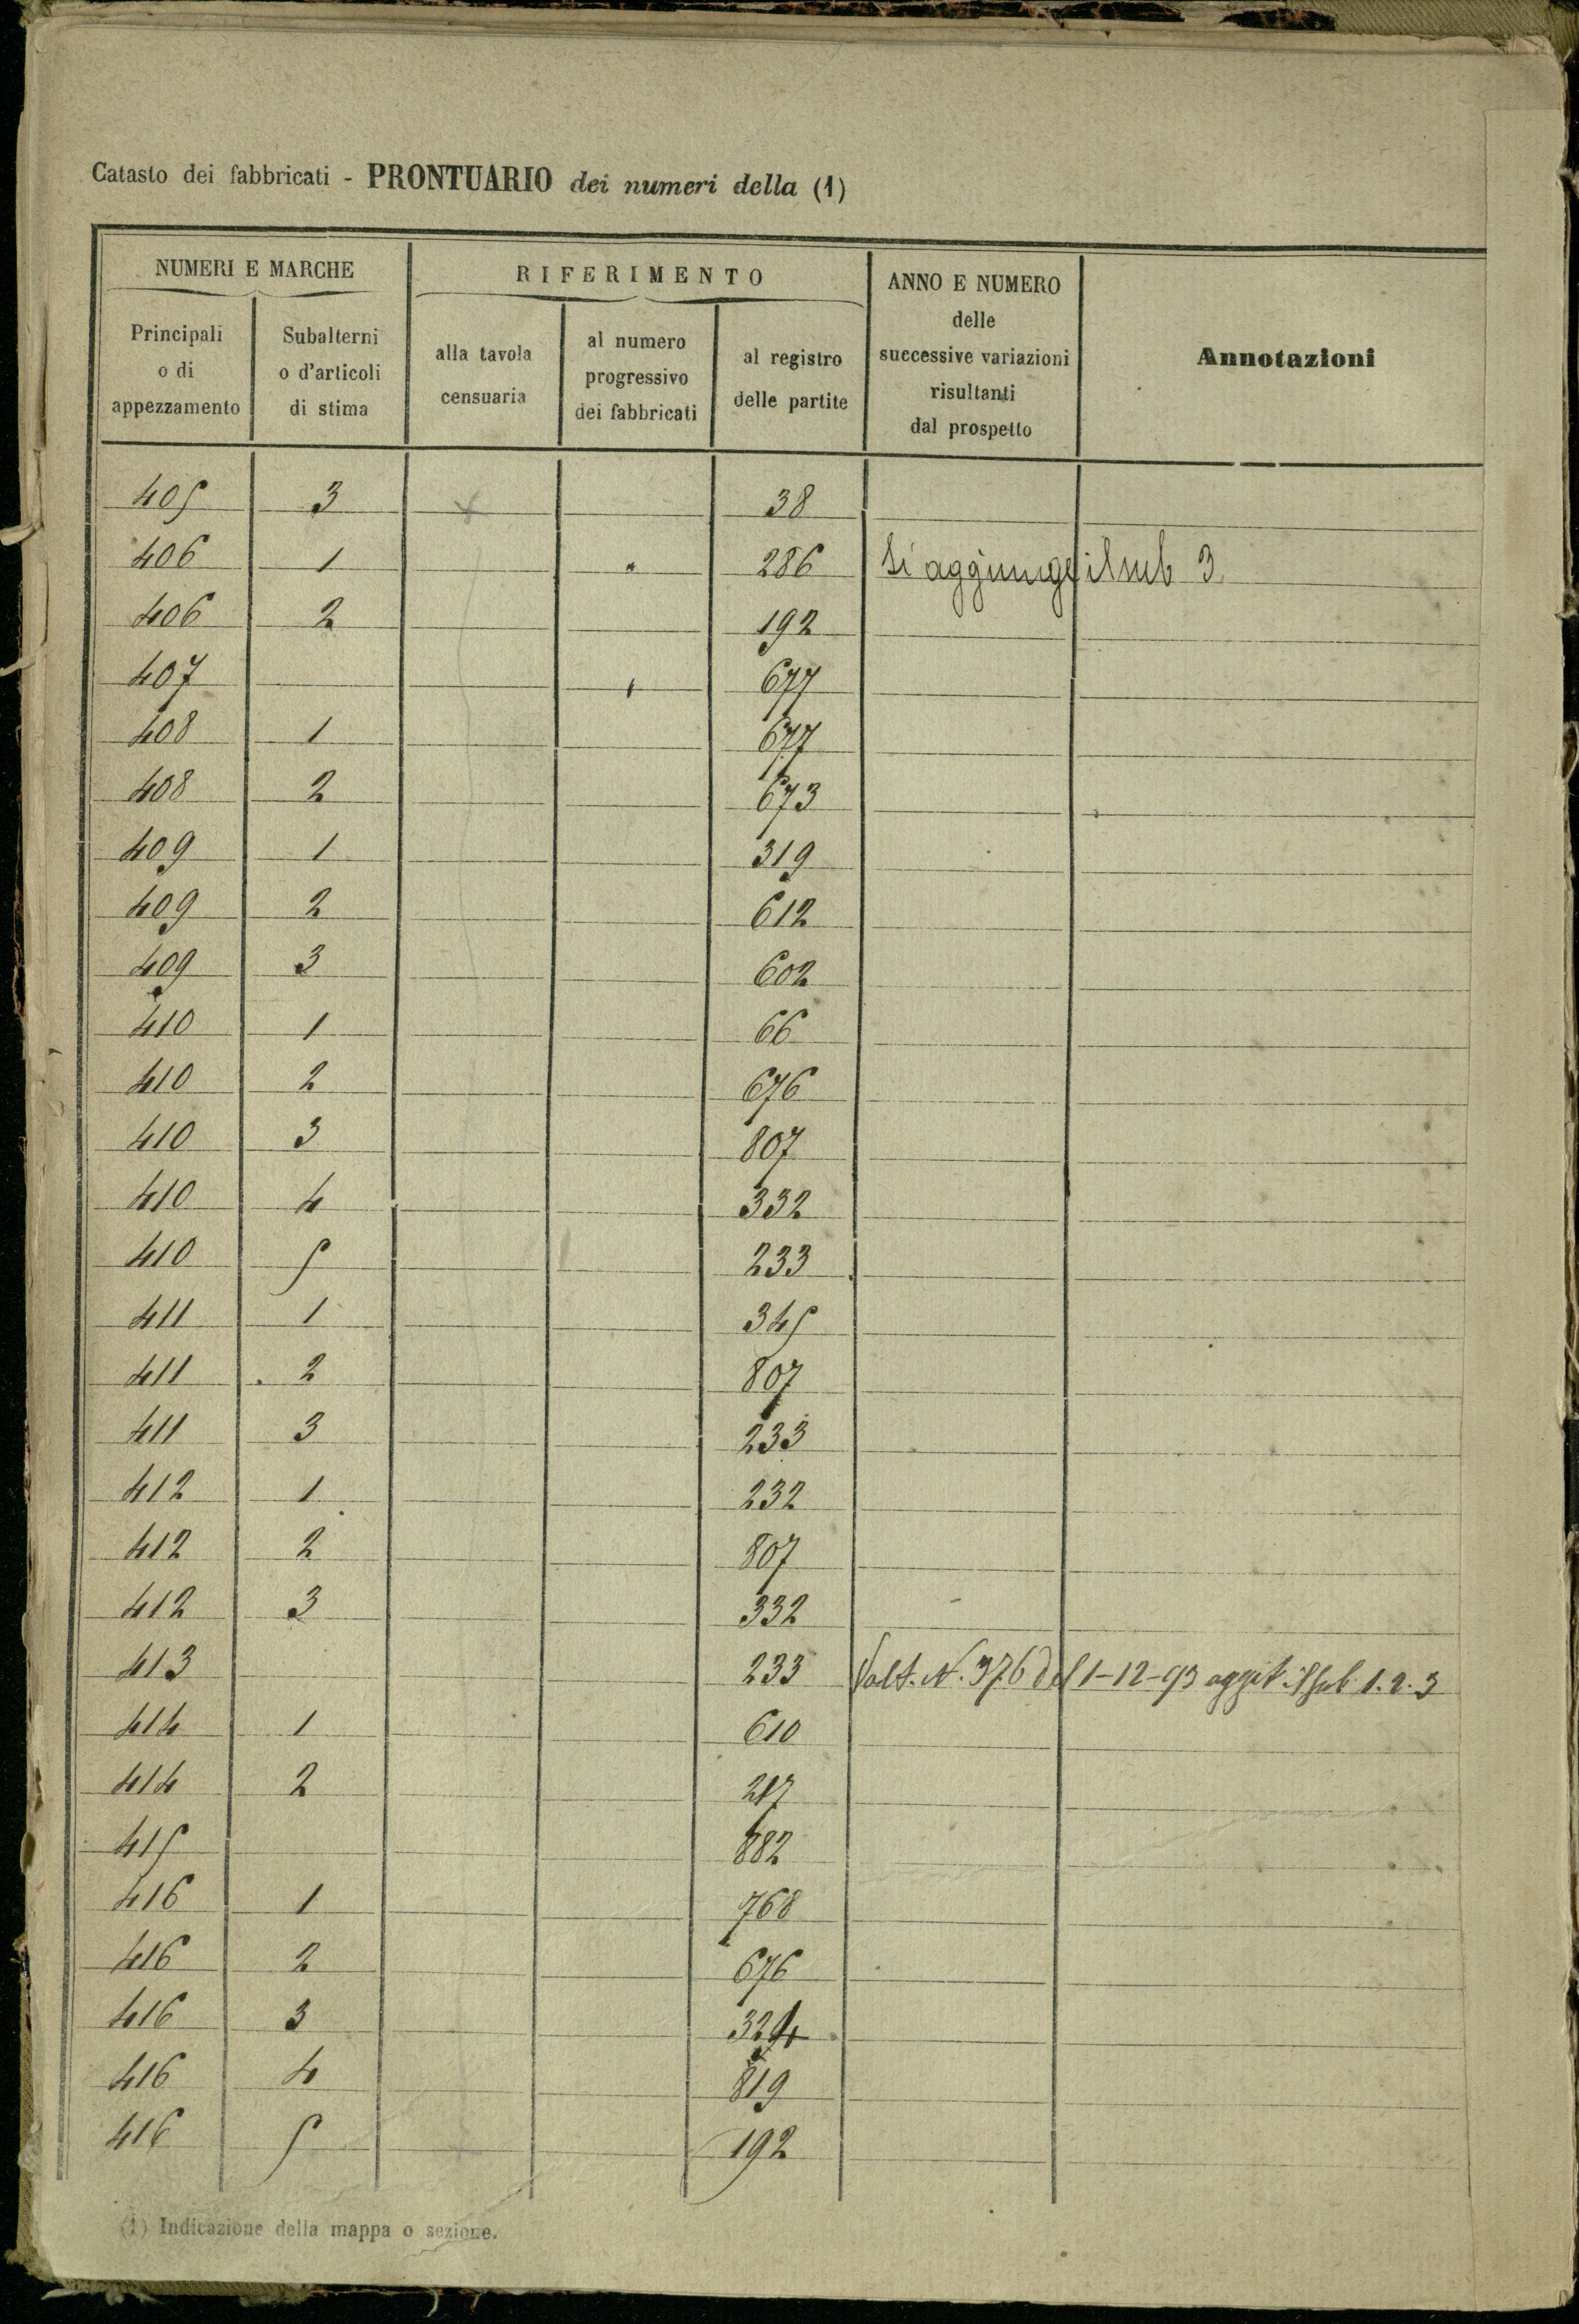 Catasto dei fabbricati - PRONTUARIO dei numeri della (1)
NUMERI E MARCHE
RIFERIMENTO
ANNO E NUMERO
delle
successive variazioni
risultanti
dal prospetto
Annotazioni
Principali
o di
appezzamento
Subalterni
o d'articoli
di stima
alla tavola
censuaria
al numero
progressivo
dei fabbricati
al registro
delle partite
405 3 38
406 1 286 Si aggiunge il sub 3
406 2 192
407 677
408 1 677
408 2 673
409 1 319
409 2 612
409 3 602
410 1 66
410 2 676
410 3 807
410 4 332
410 5 233
411 1 345
411 2 807
411 3 233
412 1 232
412 2 807
412 3 332
413 233 N. 376 del 1-12-93 sub. 1. 2. 3
414 1 610
414 2 217
415 882
416 1 768
416 2 676
416 3 324
416 4 819
416 5 192
(1) Indicazione della mappa o sezione.